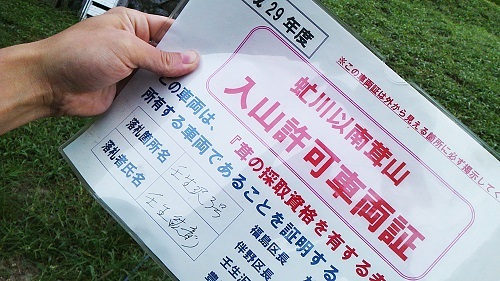 成 29年度
※この車両証は外から見える箇所に必ず掲示してく
虻川以南茸山
入山許可車両証
この車両は、『茸の採取資格を有する者
所有する車両であることを証明する
落札箇所名 壬生沢3号
落札者氏名 壬生
福島区長
伴野区長
壬生沢